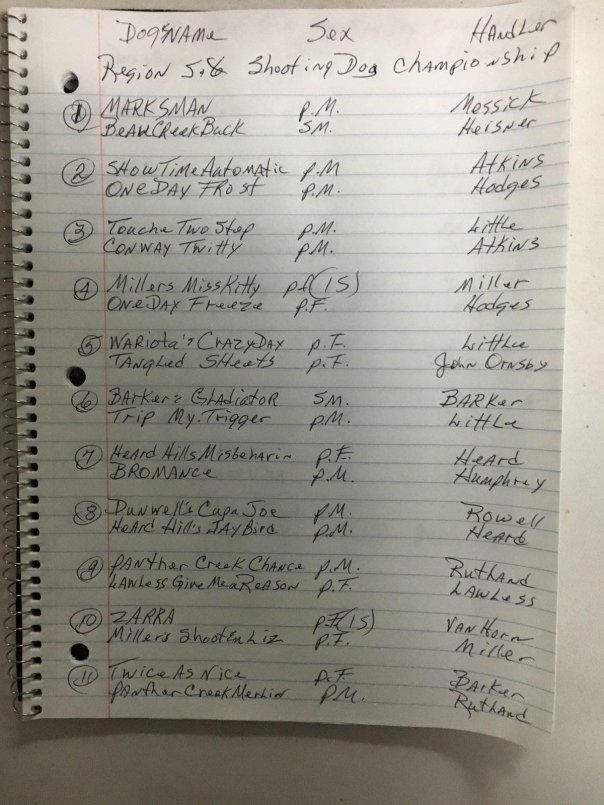 Dog's Name Sex Handler
Region 5.6 Shooting Dog Championship
1 MARKSMAN P.M. Messick
Bear Creek Buck S.M. Heisner
2 SHOWTime Automatic P.M Atkins
ONE DAY FROST P.M. Hodges
3 Touche Two Step P.M. Little
CONWAY Twitty P.M. Atkins
4 Millers Miss Kitty P.F (IS) Miller
ONE DAY Freeze P.F. Hodges
5 WARIOTA'S CRAZY DAY P.F. Little
TANGLED SHeets P.F. John Ornsby
6 BARKER'S GLADIATOR S.M. BARKER
Trip My Trigger P.M. Little
7 Heard Hills Misbehavin P.F. Heard
BROMANCE P.M. Humphrey
8 Dunwell's Capa Joe P.M. Rowell
Heard Hill's JAY Bird P.M. Heard
9 PANther Creek Chance P.M. Ruthand
LAWLess Give Me a REASON P.F. LAWLess
10 ZARRA P.F (IS) VAN Horn
Miller's Shoot Em Liz P.F. Miller
11 Twice As Nice P.F Barker
PANther Creek Merlin P.M. Ruthand